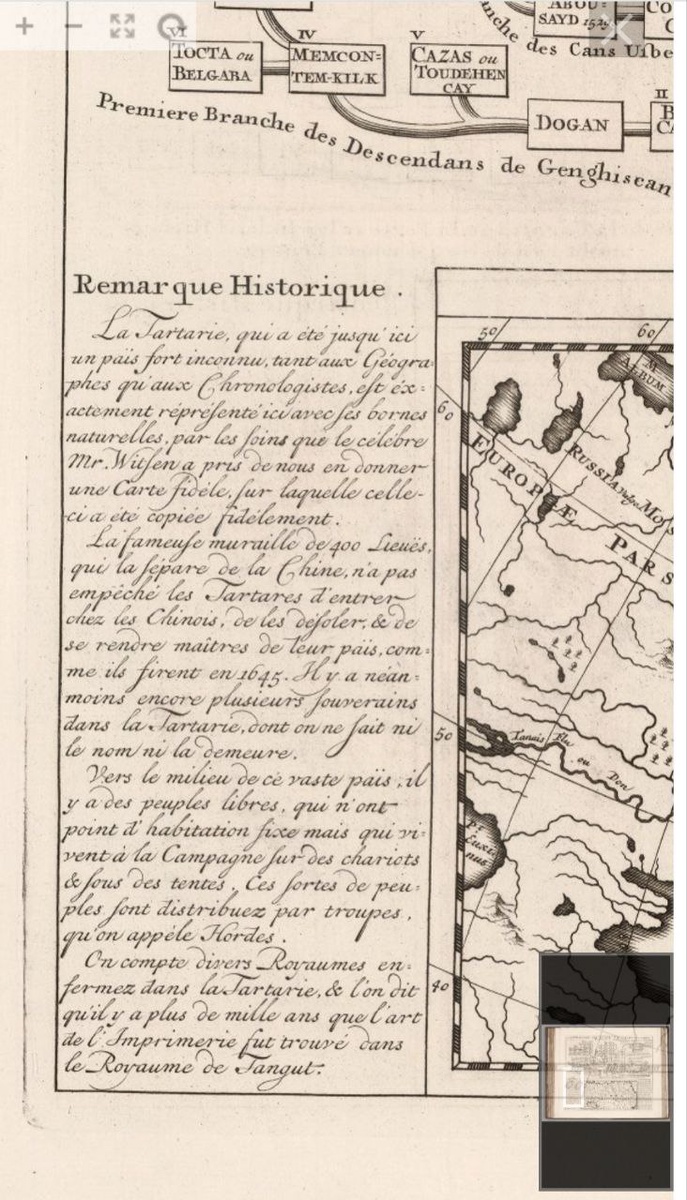 ABOU-
SAYD 1529
CO
VI
TOCTA ou
BELGARA
IV
MEMCON=
TEM-KILK
V
CAZAS ou
TOUDEHEN
CAY
nche des Cans Usbe
II
DOGAN
Premiere Branche des Descendans de Genghiscan
Remarque Historique .
La Tartarie, qui a été jusqu'ici
un païs fort inconnu, tant aux Géogra=
phes qu'aux Chronologistes, est éx=
actement réprésenté ici avec ses bornes
naturelles, par les soins que le célébre
Mr. Witsen a pris de nous en donner
une Carte fidéle, sur laquelle celle-
-ci a été copiée fidélement.
La fameuse muraille de 400 Lieuës,
qui la sépare de la Chine, n'a pas
empêché les Tartares d'entrer
chez les Chinois, de les désoler, & de
se rendre maîtres de leur païs, com=
me ils firent en 1645. Il y a néan=
moins encore plusieurs souverains
dans la Tartarie, dont on ne sait ni
le nom ni la demeure.
Vers le milieu de ce vaste païs, il
y a des peuples libres, qui n'ont
point d'habitation fixe mais qui vi=
vent à la Campagne sur des chariots
& sous des tentes. Ces sortes de peu=
ples sont distribuez par troupes,
qu'on appéle Hordes.
On compte divers Royaumes en=
fermez dans la Tartarie, & l'on dit
qu'il y a plus de mille ans que l'art
de l'Imprimerie fut trouvé dans
le Royaume de Tangut.
50
60
M.
ALBUM
60
EUROPÆ
RUSSIA
PARS
50
Tanais Flu ou Don
Pt
Euxi
nus
40